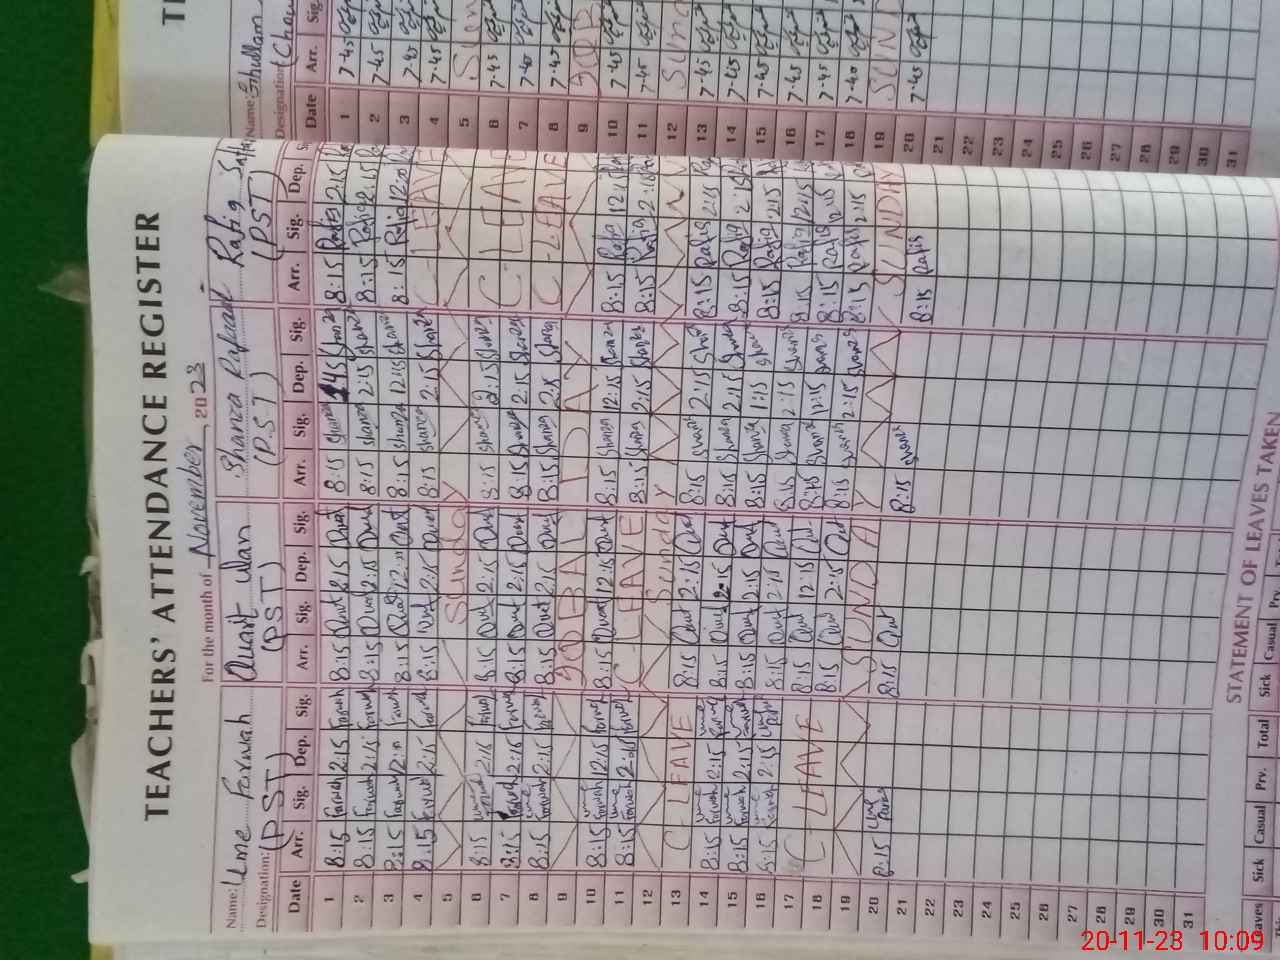 TEACHERS' ATTENDANCE REGISTER
For the month of November, 2023
Name: Ume Farwah Qurat Shanza Rafiq
Designation: (PST) (PST) (P.S.T) (PST)
Date Arr. Sig. Dep. Sig. Arr. Sig. Dep. Sig. Arr. Sig. Dep. Sig. Arr. Sig. Dep.
1 8:15 Farwah 2:15 Farwah 8:15 Qurat 2:15 Qurat 8:15 Shanza 1:45 Shanza 8:15 Rafiq 2:15
2 8:15 Farwah 2:15 Farwah 8:15 Qurat 2:15 Qurat 8:15 Shanza 2:15 Shanza 8:15 Rafiq 2:15
3 8:15 Farwah Farwah 8:15 Qurat Qurat 8:15 Shanza 12:15 Shanza 8:15 Rafiq
4 8:15 Farwah 2:15 Farwah 8:15 Qurat 2:15 Qurat 8:15 Shanza 2:15 Shanza C-LEAVE
5 Sunday
6 8:15 Ume Farwah 2:15 Farwah 8:15 Qurat 2:15 Qurat 8:15 Shanza 2:15 Shanza C-LEAVE
7 8:15 Farwah 2:15 Farwah 8:15 Qurat 2:15 Qurat 8:15 Shanza 2:15 Shanza
8 8:15 Farwah 2:15 Farwah 8:15 Qurat 2:15 Qurat 8:15 Shanza 2:15 Shanza C-LEAVE
9 IQBAL DAY
10 8:15 Ume Farwah 12:15 Farwah 8:15 Qurat 12:15 Qurat 8:15 Shanza 12:15 Shanza 8:15 Rafiq
11 8:15 Ume Farwah Farwah C-LEAVE 8:15 Shanza 2:15 Shanza 8:15 Rafiq 2:15
12 Sunday
13 C-LEAVE 8:15 Qurat 2:15 Qurat 8:15 Shanza 2:15 8:15 Rafiq 2:15
14 8:15 Ume Farwah 2:15 8:15 Qurat 2:15 Qurat 8:15 Shanza 2:15 Shanza 8:15 Rafiq 2:15
15 8:15 Ume Farwah 2:15 Farwah 8:15 Qurat 2:15 Qurat 8:15 Shanza 1:15 Shanza 8:15 Rafiq 2:15
16 8:15 Ume Farwah 2:15 8:15 Qurat 2:15 Qurat 8:15 Shanza 2:15 Shanza 8:15 Rafiq 12:15
17 C-LEAVE 8:15 Qurat 12:15 8:15 Shanza 12:15 Shanza 8:15 Rafiq 12:15
18 8:15 Qurat 2:15 Qurat 8:15 Shanza 2:15 Shanza 8:15 Rafiq 2:15
19 SUNDAY SUNDAY
20 8:15 Ume 8:15 Qurat 8:15 Shanza 8:15 Rafiq
21
22
23
24
25
26
27
28
29
30
31
STATEMENT OF LEAVES TAKEN
Sick Casual Prv. Total Sick Casual Prv.
Name: Ghullam
Designation:
Date Arr.
1 7-45
2 7-45
3 7-45
4 7-45
5 Sun
6 7-45
7 7-45
8 7-45
9 IQB
10 7-45
11 7-45
12 Sund
13 7-45
14 7-45
15 7-45
16 7-45
17 7-45
18 7-40
19 SUND
20 7-45
21
22
23
24
25
26
27
28
29
30
31
20-11-23 10:09